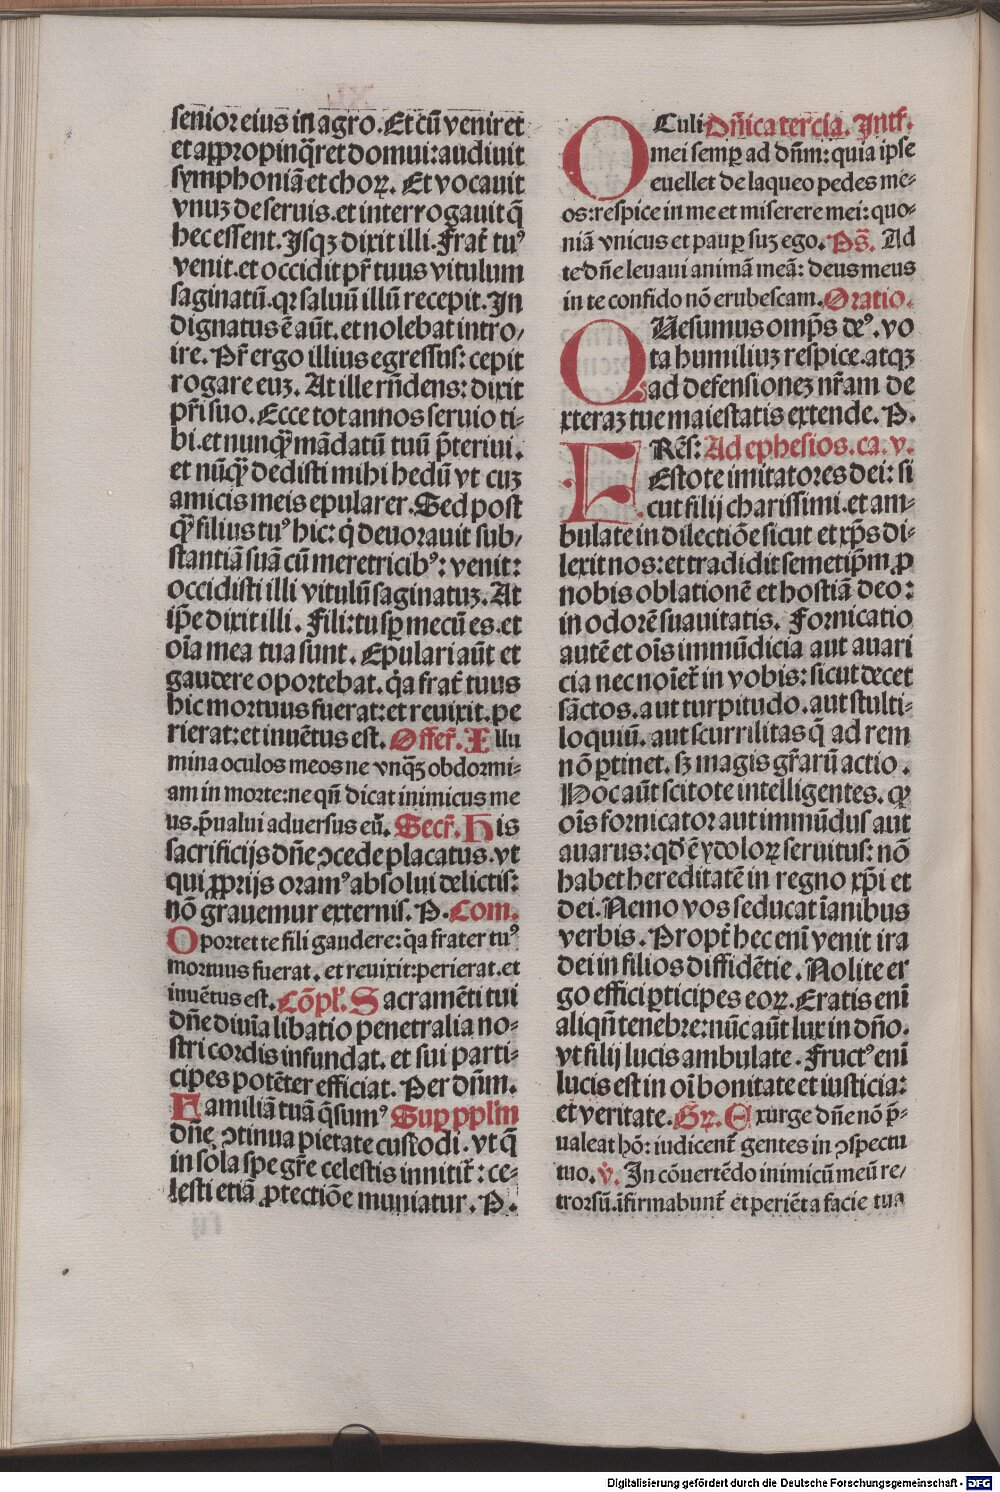 senior eius in agro. Et cū veniret
et appropinq̄ret domui: audiuit
symphoniā et choꝝ. Et vocauit
vnuꝫ de seruis. et interrogauit q̄
hec essent. Isqꝫ dixit illi. Frat̄ tuꝰ
venit. et occidit pr̄ tuus vitulum
saginatū. qꝛ saluū illū recepit. In
dignatus ē aūt. et nolebat intro,
ire. Pr̄ ergo illius egressus: cepit
rogare euꝫ. At ille rn̄dens: dixit
pr̄i suo. Ecce tot annos seruio ti-
bi. et nunq̄ꝫ mādatū tuū p̄teriui.
et nūq̄ꝫ dedisti mihi hedū vt cuꝫ
amicis meis epularer. Sed post
q̄ꝫ filius tuꝰ hic: q̇ deuorauit sub,
stantiā suā cū meretricibꝰ: venit:
occidisti illi vitulū saginatuꝫ. At
ip̄e dixit illi. Fili: tu sꝑ mecū es. et
oīa mea tua sunt. Epulari aūt et
gaudere oportebat. q̇a frat̄ tuus
hic mortuus fuerat: et reuixit. pe
rierat: et inuētus est. Offer̄. Illu
mina oculos meos ne vnqꝫ̄ obdormi-
am in morte: ne qn̄ dicat inimicus me
us. p̄ualui aduersus eū. Secr̄. His
sacrificijs dn̄e ↄcede placatus. vt
qui ꝓprijs oramꝰ absolui delictis:
nō grauemur externis. P. Com.
Oportet te fili gaudere: q̇a frater tuꝰ
mortuus fuerat. et reuixit: perierat. et
inuētus est. Cōpl'. Sacramēti tui
dn̄e diuīa libatio penetralia no-
stri cordis infundat. et sui parti-
cipes potēter efficiat. Per dn̄m.
Familiā tuā q̄sumꝰ Suꝑ ppl'm
dn̄e ↄtinua pietate custodi. vt q̄
in sola spe gr̄e celestis innitit̄: ce-
lesti etiā ꝓtectiōe muniatur. P.
OCuli Dn̄ica tercia. Intr̄.
mei semꝑ ad dn̄m: quia ipse
euellet de laqueo pedes me-
os: respice in me et miserere mei: quo-
niā vnicus et pauꝑ suꝫ ego. Ps̄. Ad
te dn̄e leuaui animā meā: deus meus
in te confido nō erubescam. Oratio.
QUesumus omp̄s deꝰ. vo
ta humiliuꝫ respice. atqꝫ
ad defensioneꝫ nr̄am de
xteraꝫ tue maiestatis extende. P.
FRēs: Ad ephesios. ca. v.
Estote imitatores dei: si
cut filij charissimi. et am-
bulate in dilectiōe sicut et xp̄s di-
lexit nos: et tradidit semetip̄m ꝓ
nobis oblationē et hostiā deo:
in odorē suauitatis. Fornicatio
autē et oīs immūdicia aut auari
cia nec noīet̄ in vobis: sicut decet
sāctos. aut turpitudo. aut stulti-
loquiū. aut scurrilitas q̄ ad rem
nō ꝑtinet. sꝫ magis gr̄arū actio.
Hoc aūt scitote intelligentes. qꝛ
oīs fornicator aut immūdus aut
auarus: qd̓ ē ydoloꝝ seruitus: nō
habet hereditatē in regno xp̄i et
dei. Nemo vos seducat īanibus
verbis. Propt̄ hec enī venit ira
dei in filios diffidētie. Nolite er
go effici ꝑticipes eoꝝ. Eratis enī
aliqn̄ tenebre: nūc aūt lux in dn̄o.
vt filij lucis ambulate. Fructꝰ enī
lucis est in oī bonitate et iusticia:
et veritate. Gꝛ. Exurge dn̄e nō p̄-
ualeat hō: iudicent̄ gentes in ↄspectu
tuo. v̇. In cōuertēdo inimicū meū re,
trorsū. īfirmabunt̄ et periēt a facie tua
Digitalisierung gefördert durch die Deutsche Forschungsgemeinschaft - DFG